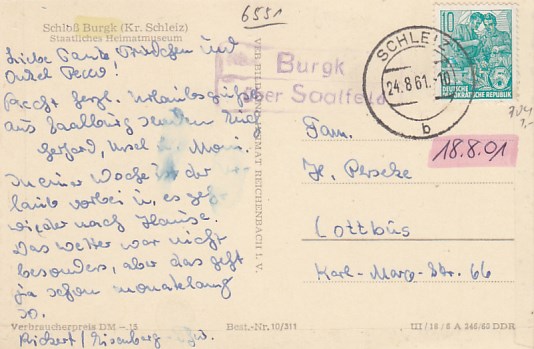 6551
Schloß Burgk (Kr. Schleiz)
Staatliches Heimatmuseum
Liebe Tante Trudchen und
Onkel
Recht herzl. Urlaubsgrüße
aus Saalburg senden Euch
Gerhard, Ursel u. Moni.
In einer Woche ist der
laub vorbei u. es geht
wieder nach Hause.
Das Wetter war nicht
besonders, aber das geht
ja schon monatelang
so.
Verbraucherpreis DM -.15
Rickert / Eisenberg - Thür.
Best.-Nr. 10/311
VER BILD HEIMAT REICHENBACH I. V.
Burgk
über Saalfeld
SCHLEIZ
24.8.61.-10
b
10
DEUTSCHE
DEMOKRATISCHE REPUBLIK
18.8.01
Fam.
H.
Cottbus
Karl-Marx-Str. 66
III/18/6 A 346/60 DDR